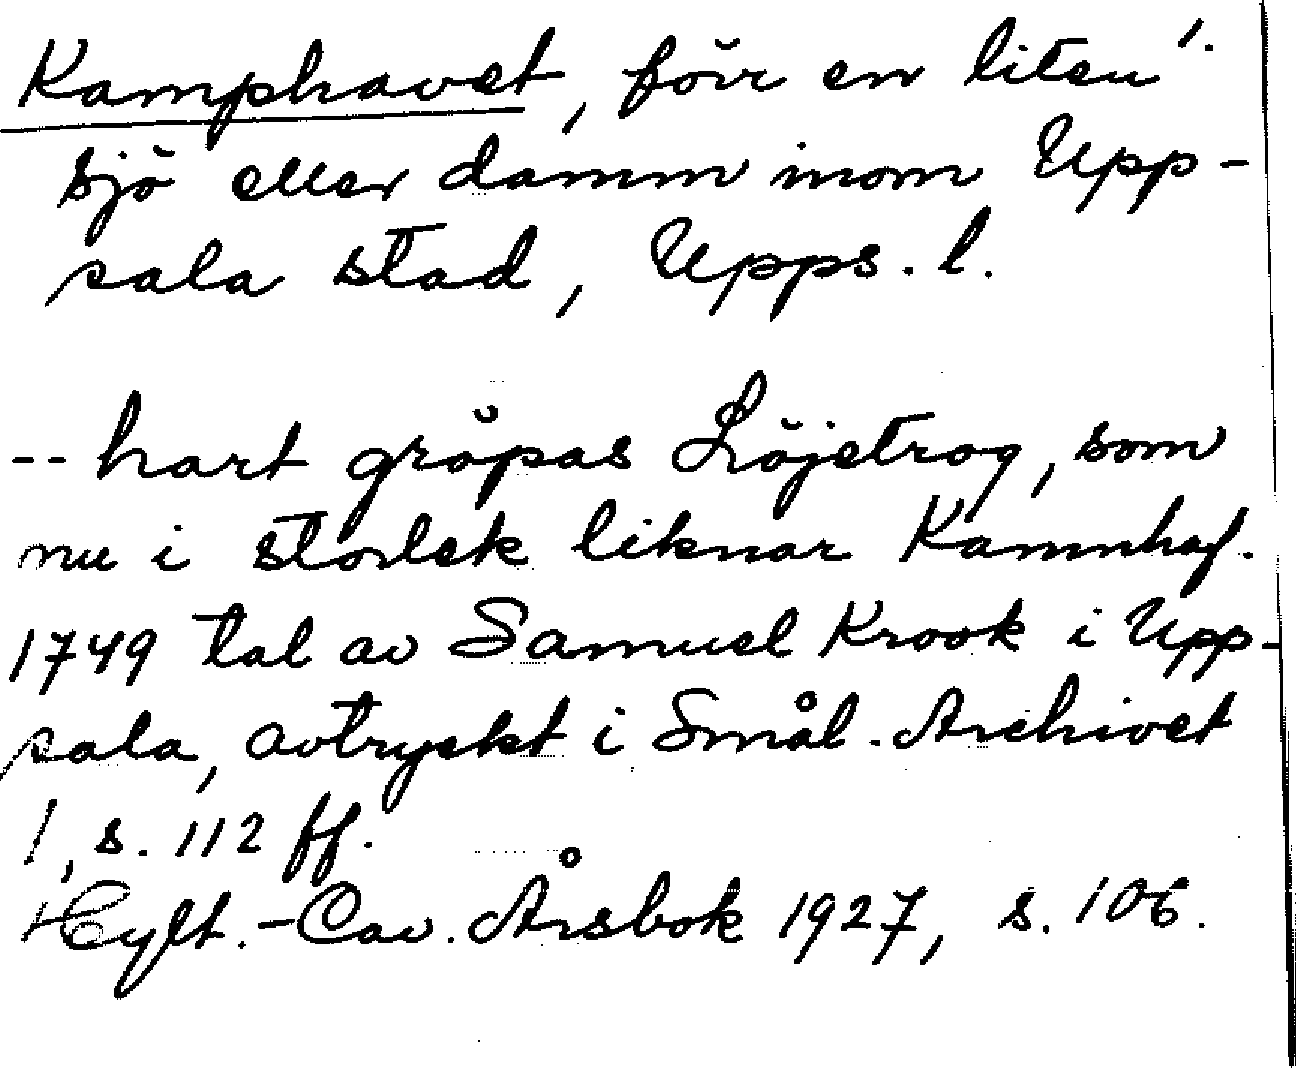 Kamphavet, förr en liten 1.
sjö eller damm inom Upp-
sala stad, Upps. l.
-- hart gröpas Löjetrog, som
nu i storlek liknar Kammhaf.
1749 tal av Samuel Krook i Upp-
sala, avtryckt i Smål. Archivet
1, s. 112 ff.
Hylt.-Cav. Årsbok 1927, s. 106.